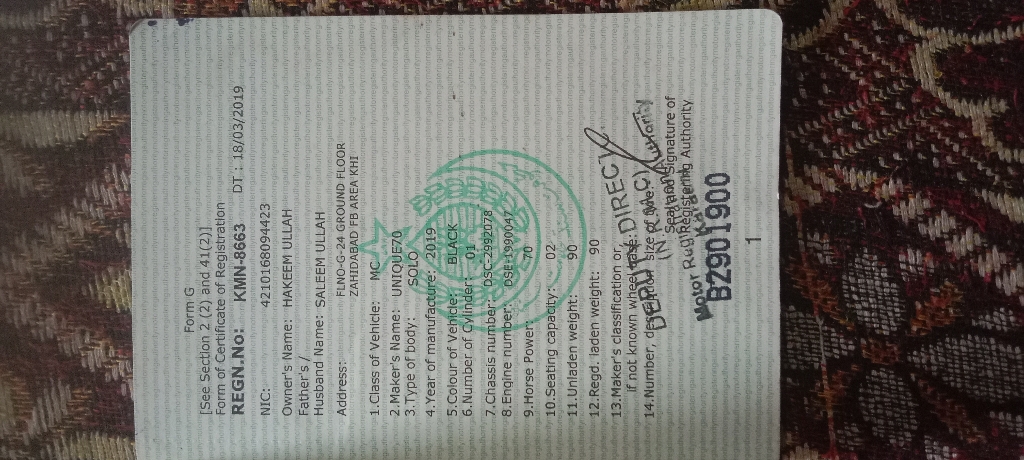 Form G
[See Section 2 (2) and 41(2)]
Form of Certificate of Registration
REGN.No: KMN-8663 DT : 18/03/2019
NIC: 4210168094423
Owner's Name: HAKEEM ULLAH
Father's /
Husband Name: SALEEM ULLAH
Address: FLNO-G-24 GROUND FLOOR
ZAHIDABAD FB AREA KHI
1.Class of Vehicle: MC
2.Maker's Name: UNIQUE70
3.Type of body: SOLO
4.Year of manufacture: 2019
5.Colour of Vehicle: BLACK
6.Number of Cylinder: 01
7.Chassis number: DSC-2992078
8.Engine number: DSE-1990047
9.Horse Power: 70
10.Seating capacity: 02
11.Unladen weight: 90
12.Regd. laden weight: 90
13.Maker's classification or,
if not known wheel base:
14.Number, description size of tyre:
Seal and Signature of
Registering Authority
DIRECT
Motor Authority
BZ901900
1